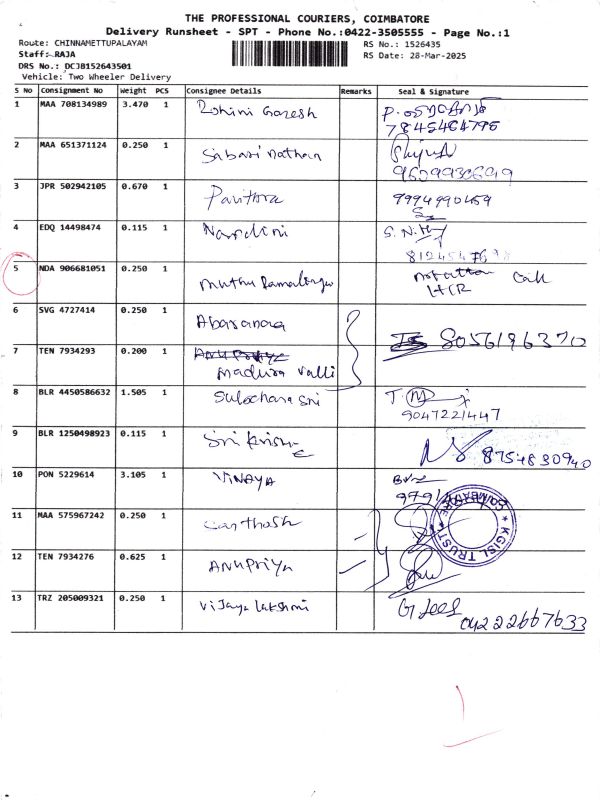 THE PROFESSIONAL COURIERS, COIMBATORE
Delivery Runsheet - SPT - Phone No.:0422-3505555 - Page No.:1
Route: CHINNAMETTUPALAYAM RS No.: 1526435
Staff: RAJA RS Date: 28-Mar-2025
DRS No.: DCJB152643501
Vehicle: Two Wheeler Delivery
S No Consignment No Weight PCS Consignee Details Remarks Seal & Signature
1 MAA 708134989 3.470 1 Rohini Ganesh
7845464795
2 MAA 651371124 0.250 1 Sabari nathan
3 JPR 502942105 0.670 1 Pavithra 9994990459
4 EDQ 14498474 0.115 1 Nandini
5 NDA 906681051 0.250 1 muthu Ramalingam Call
6 SVG 4727414 0.250 1 8056196370
7 TEN 7934293 0.200 1 madura valli
8 BLR 4450586632 1.505 1 Sulochana sri
9047221447
9 BLR 1250498923 0.115 1 Sri 8754830940
10 PON 5229614 3.105 1 VINAYA
11 MAA 575967242 0.250 1 Santhosh
KGISL TRUST * COIMBATORE *
12 TEN 7934276 0.625 1 ANUPriya
13 TRZ 205009321 0.250 1 Vijaya lakshmi
04222667633